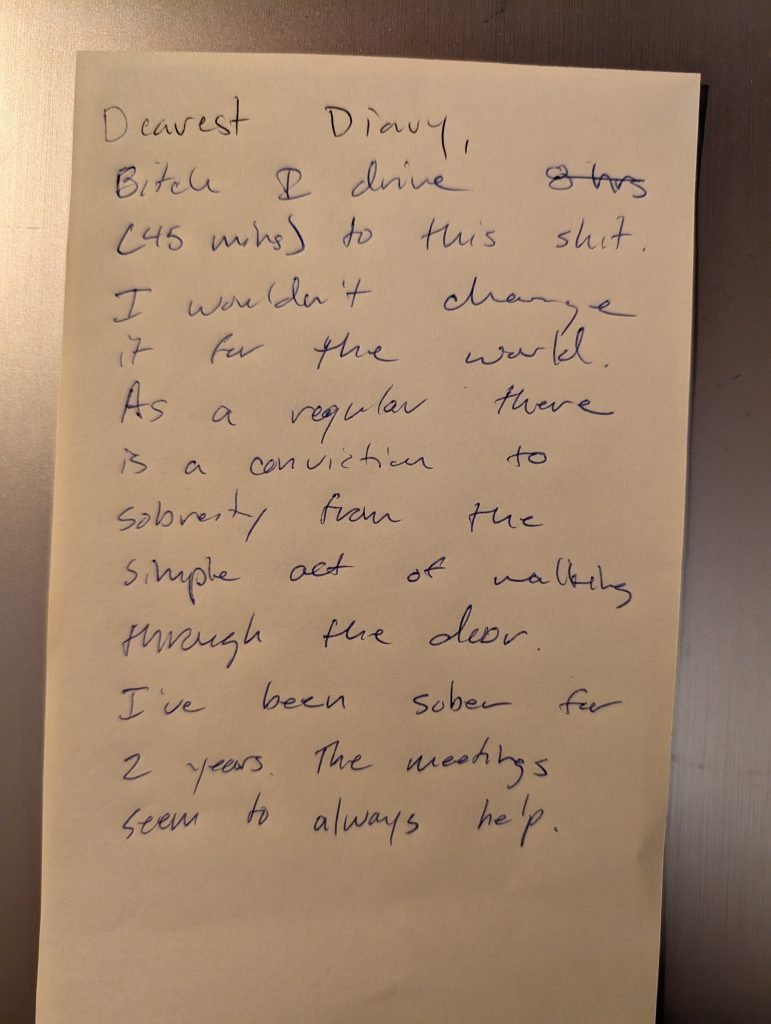 Dearest Diary,
Bitch I drive 8 hrs
(45 mins) to this shit.
I wouldn't change
it for the world.
As a regular there
is a conviction to
sobresty from the
simple act of walking
through the door.
I've been sober for
2 years. The meetings
seem to always help.